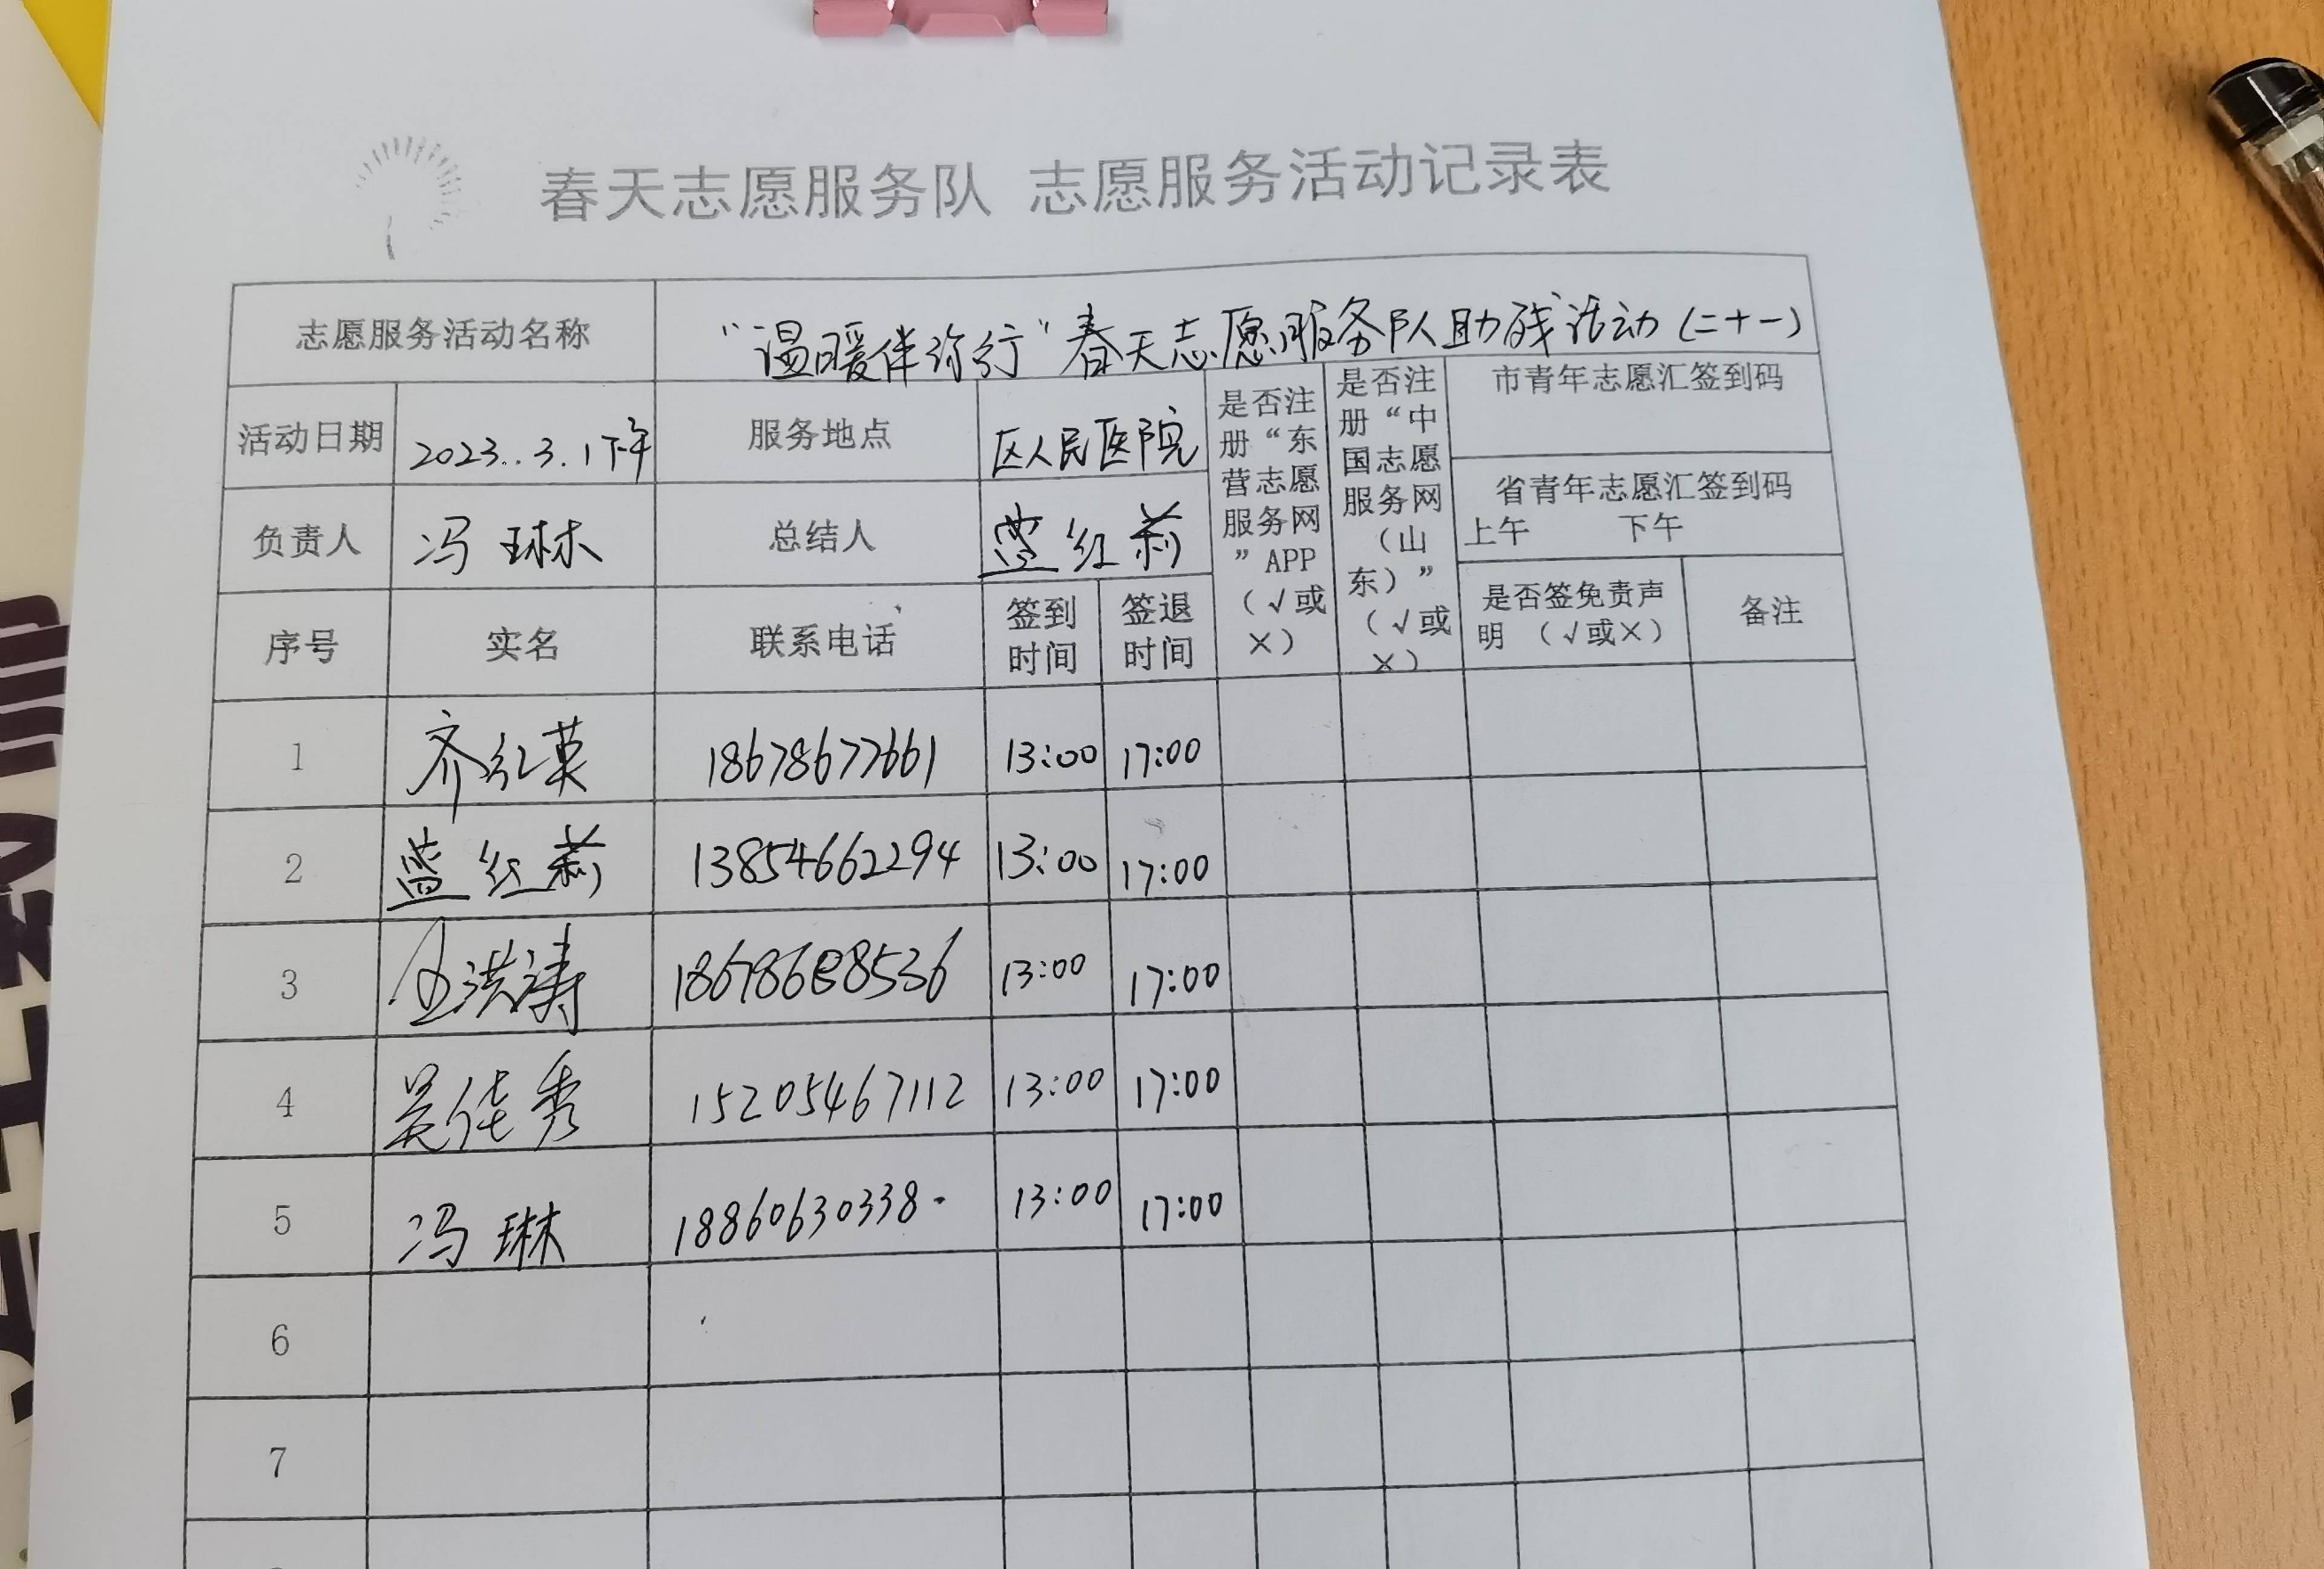 春天志愿服务队 志愿服务活动记录表
志愿服务活动名称 “温暖伴你行”春天志愿服务队助残活动(二十一)
活动日期 2023..3.1下午 服务地点 区人民医院
是否注册“东营志愿服务网”APP（√或×）
是否注册“中国志愿服务网（山东）”（√或×）
市青年志愿汇签到码
省青年志愿汇签到码
上午 下午
负责人 冯琳 总结人 蓝红莉
序号 实名 联系电话 签到时间 签退时间 是否签免责声明（√或×） 备注
1 齐红英 18678677661 13:00 17:00
2 蓝红莉 13854662294 13:00 17:00
3 洪涛 18678688536 13:00 17:00
4 吴佳秀 15205467112 13:00 17:00
5 冯琳 18860630338 13:00 17:00
6
7